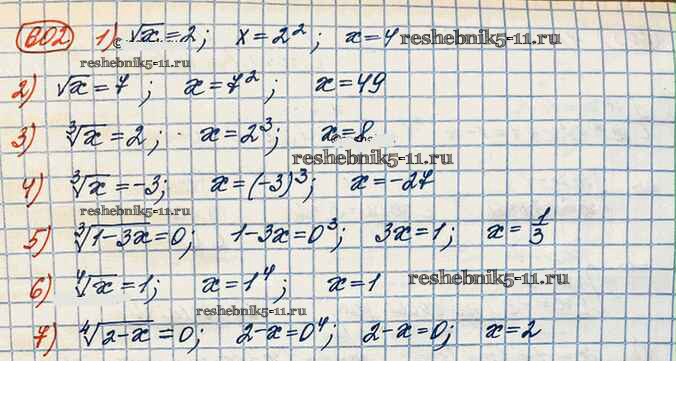 602 1) √x=2; x=2²; x=4 reshebnik5-11.ru
reshebnik5-11.ru
2) √x=7; x=7²; x=49
3) ∛x=2; x=2³; x=8
reshebnik5-11.ru
4) ∛x=-3; x=(-3)³; x=-27
reshebnik5-11.ru
5) ∛(1-3x)=0; 1-3x=0³; 3x=1; x=1/3
6) ∜x=1; x=1⁴; x=1 reshebnik5-11.ru
reshebnik5-11.ru
7) ∜(2-x)=0; 2-x=0⁴; 2-x=0; x=2